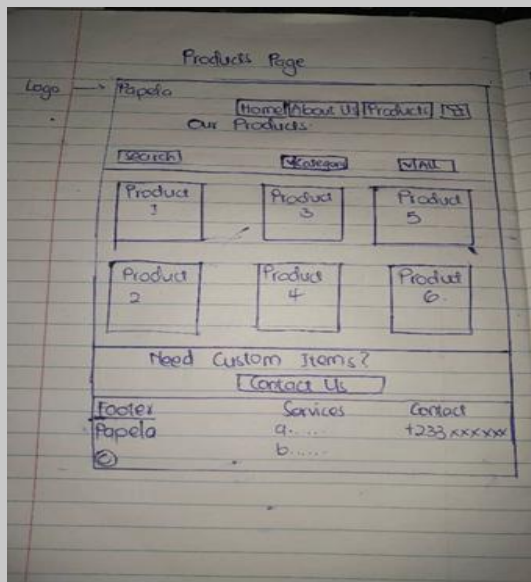 Products Page
Logo → Papela
Home About Us Products
Our Products
Search Category All
Product 1 Product 3 Product 5
Product 2 Product 4 Product 6
Need Custom Items?
Contact Us
Footer Services Contact
Papela a...... +233xxxxxxx
© b......